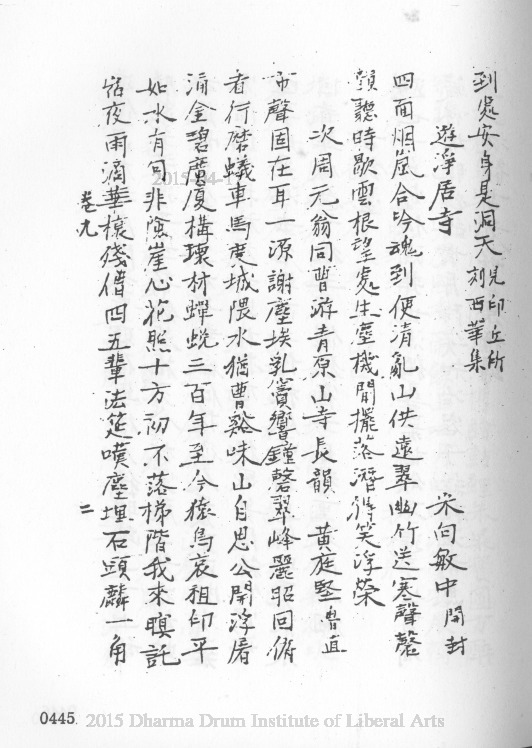 到處安身是洞天 見印丘所刻西華集
遊淨居寺 宋向敏中開封
四面烟嵐合吟魂到便清亂山供遠翠幽竹送寒聲磬
韻聽時歇雲根望處生塵機閒擺落潛得笑浮榮
次周元翁同曹游青原山寺長韻 黃庭堅魯直
市聲固在耳一源謝塵埃乳竇響鐘磬翠峰麗昭回俯
看行磨蟻車馬度城隈水猶曹谿味山自思公開浮屠
涌金碧廣廈構瓌材蟬蛻三百年至今猿鳥哀祖印平
如水有句非險崖心花照十方初不落梯階我來暝託
宿夜雨滴華榱殘僧四五輩法筵嘆塵埋石頭麟一角
卷九
二
0445
2015 Dharma Drum Institute of Liberal Arts